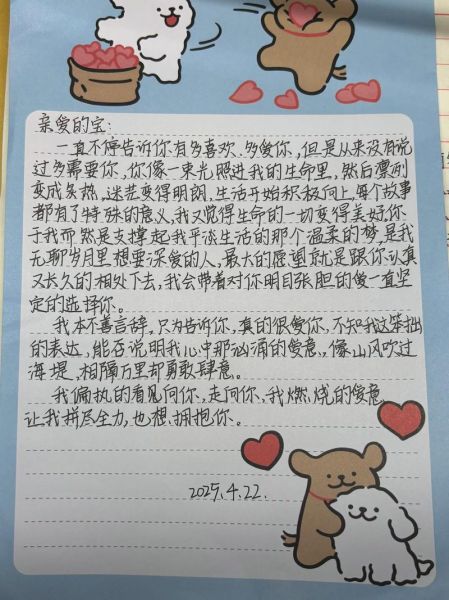 亲爱的宝:
一直不停告诉你有多喜欢、多爱你,但是从来没有说
过多需要你,你像一束光照进我的生命里,然后凛冽
变成炙热,迷茫变得明朗,生活开始积极向上,每个故事
都有了特殊的意义,我又觉得生命的一切变得美好,你
于我而然是支撑起我平淡生活的那个温柔的梦,是我
无聊岁月里想要深爱的人,最大的愿望就是跟你认真
又长久的相处下去,我会带着对你明目张胆的爱一直坚
定的选择你。
我本不善言辞,只为告诉你,真的很爱你,不知我这笨拙
的表达,能否说明我心中那汹涌的爱意,像山风吹过
海堤,相隔万里却勇敢肆意。
我偏执的看见向你,走向你,我燃烧的爱意
让我拼尽全力,也想拥抱你。
2025.4.22.